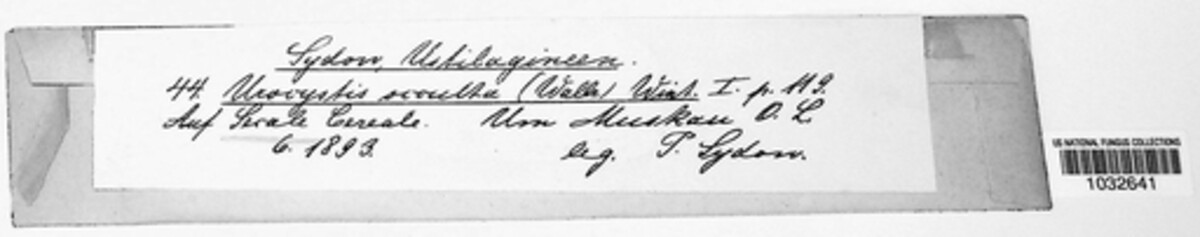 Sydow, Ustilagineen.
44. Urocystis occulta (Wallr) Wint. I. p. 119.
Auf Secale Cereale. Um Muskau O. L.
6. 1893. leg. P. Sydow.
US NATIONAL FUNGUS COLLECTIONS
1032641